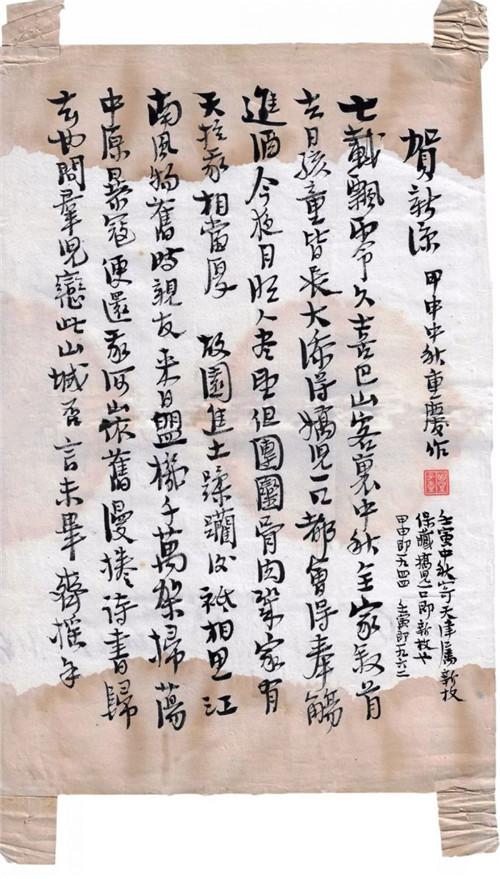 賀新涼 甲申中秋重慶作
壬寅中秋寄天津屬新枚
保藏嬌兒一口即新枚也
甲申即一九四四 壬寅即一九六二
七載飄零久喜巴山客裏中秋全家叙首
去日孩童皆長大添得嬌兒一口都會得奉觴
進酒今夜月明人盡望但團圞骨肉幾家有
天於我相當厚 故園焦土蹂躪後祇相思江
南風物舊時親友來日盟機千萬架掃蕩
中原暴寇便還我河山依舊漫捲詩書歸
去也問羣兒戀此山城否言未畢齊搖手